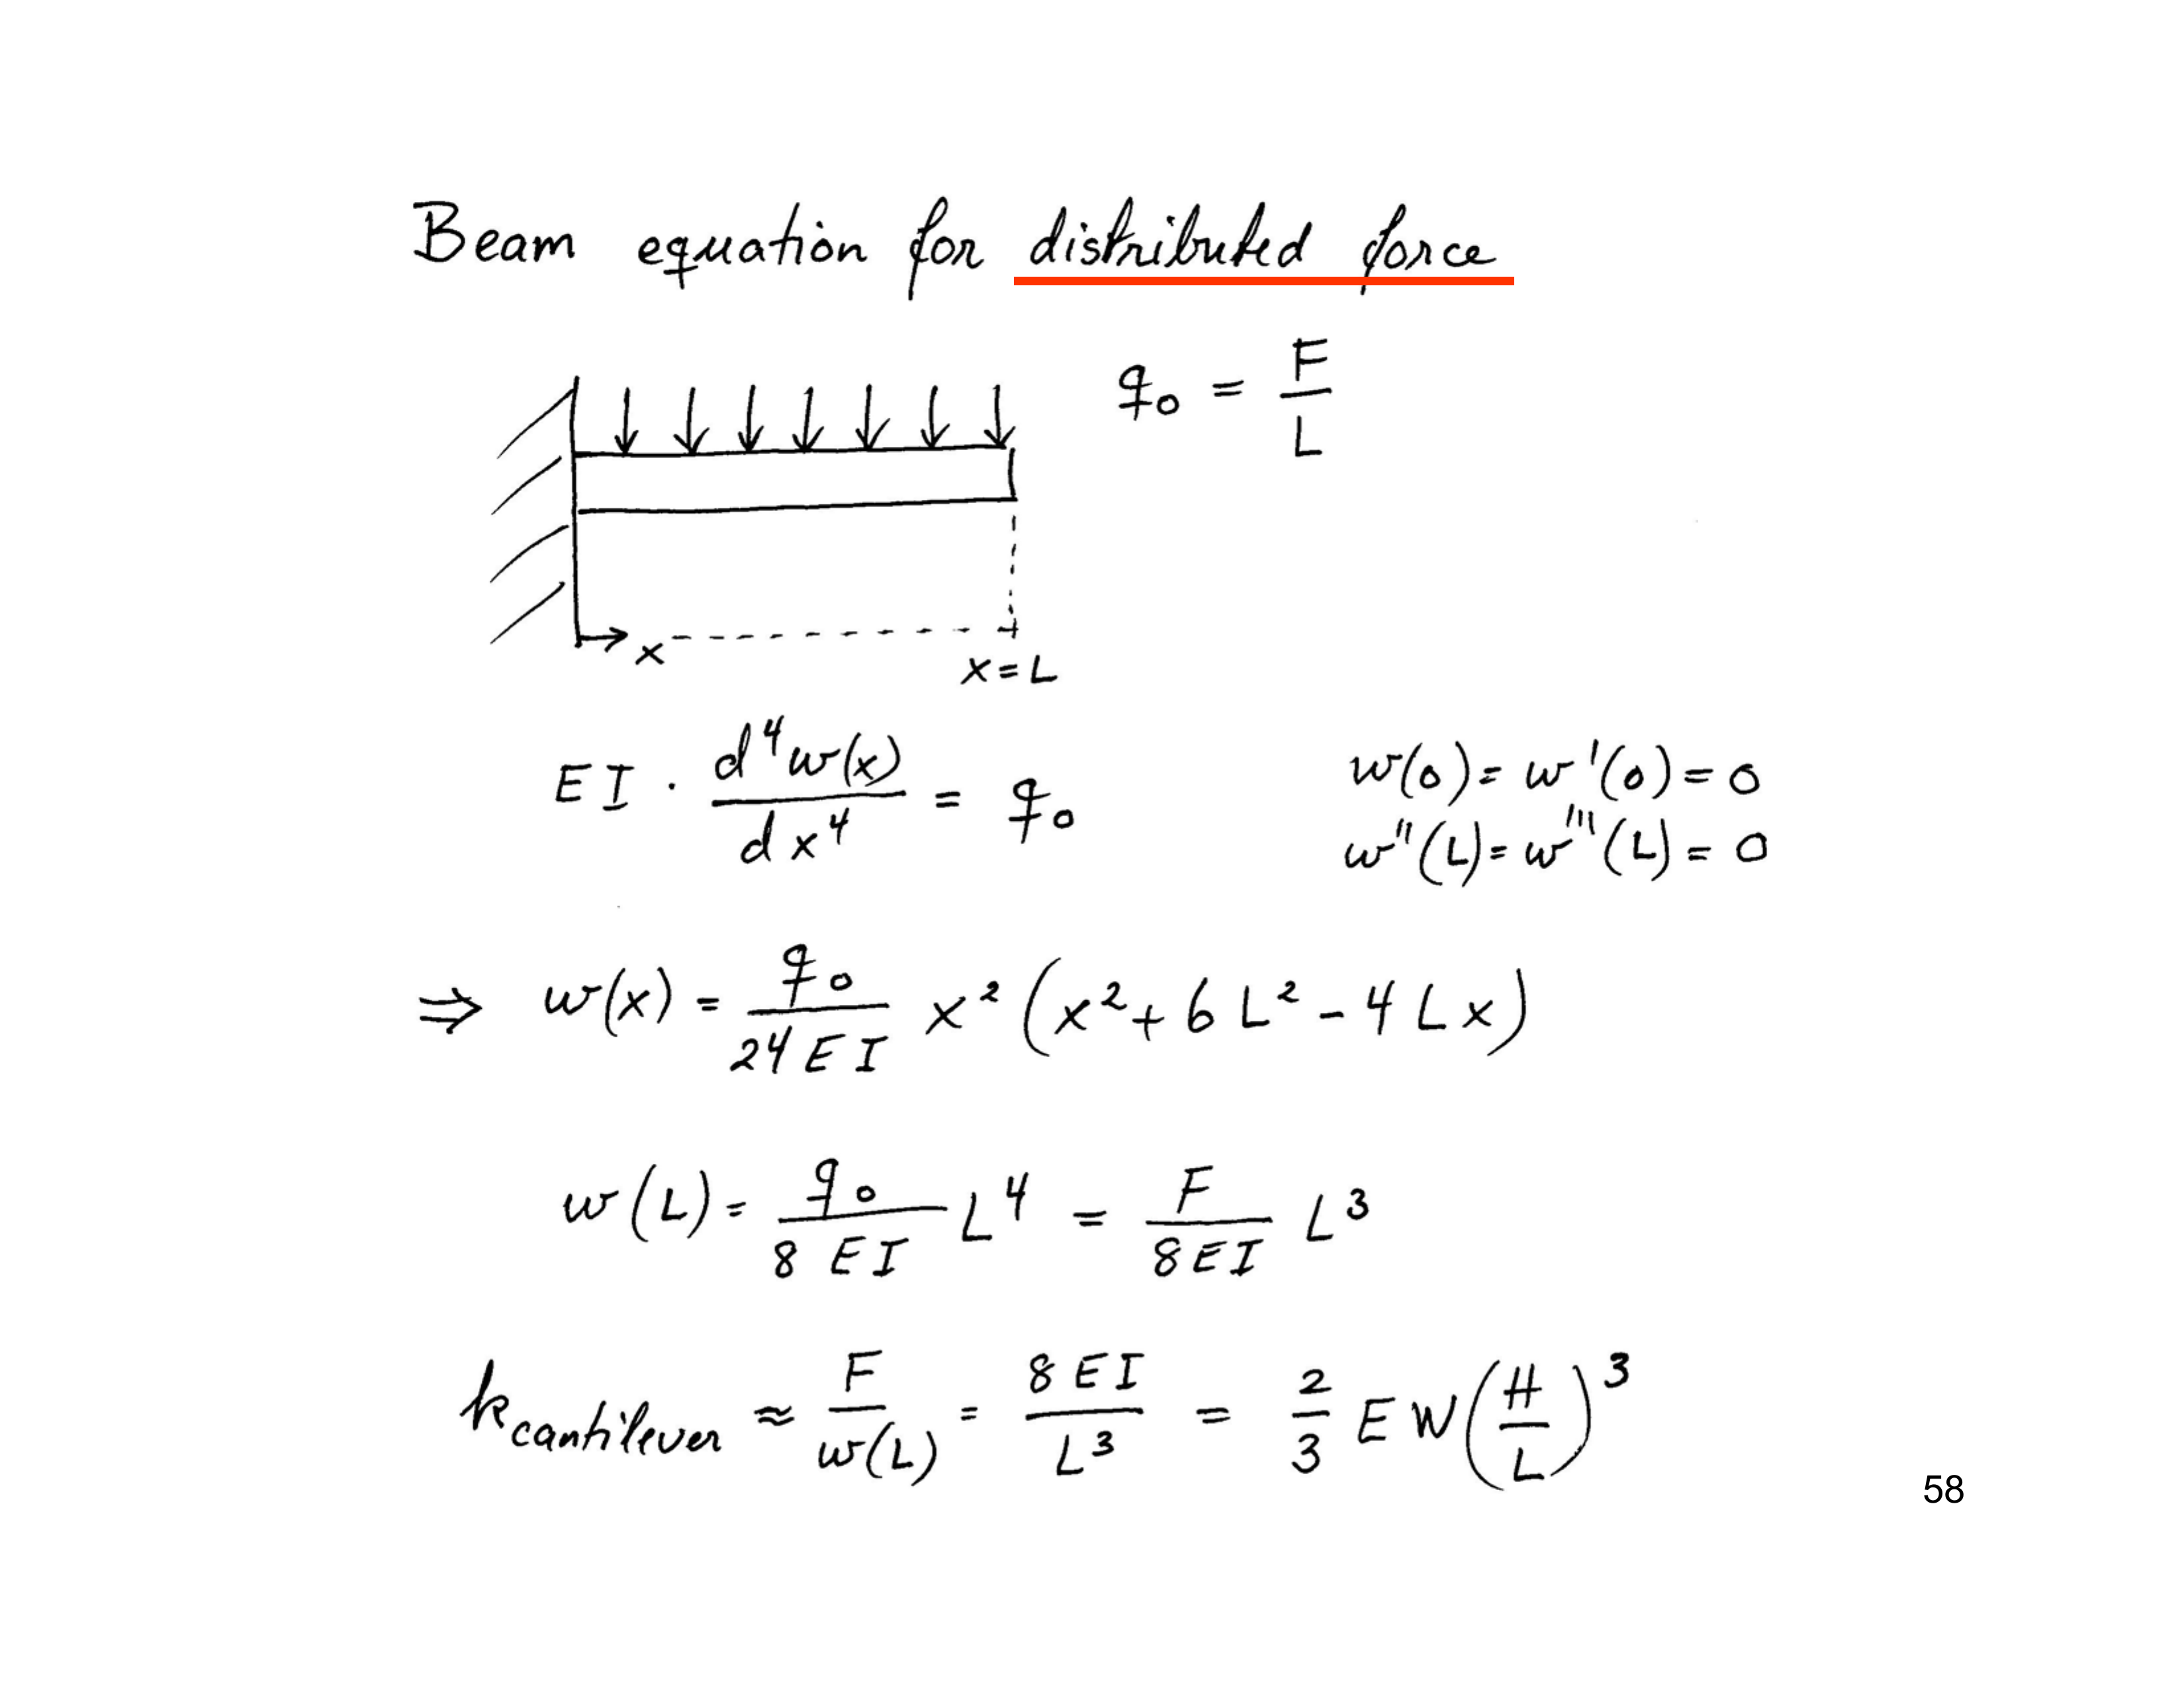 Beam equation for distributed force
q₀ = F/L
x
x = L
EI · d⁴w(x)/dx⁴ = q₀
w(0) = w'(0) = 0
w''(L) = w'''(L) = 0
⇒ w(x) = q₀/24EI x² (x² + 6L² - 4Lx)
w(L) = q₀/8EI L⁴ = F/8EI L³
k cantilever ≈ F/w(L) = 8EI/L³ = 2/3 EW(H/L)³
58